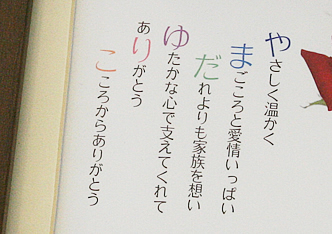 やさしく温かく
まごころと愛情いっぱい
だれよりも家族を想い
ゆたかな心で支えてくれて
ありがとう
こころからありがとう